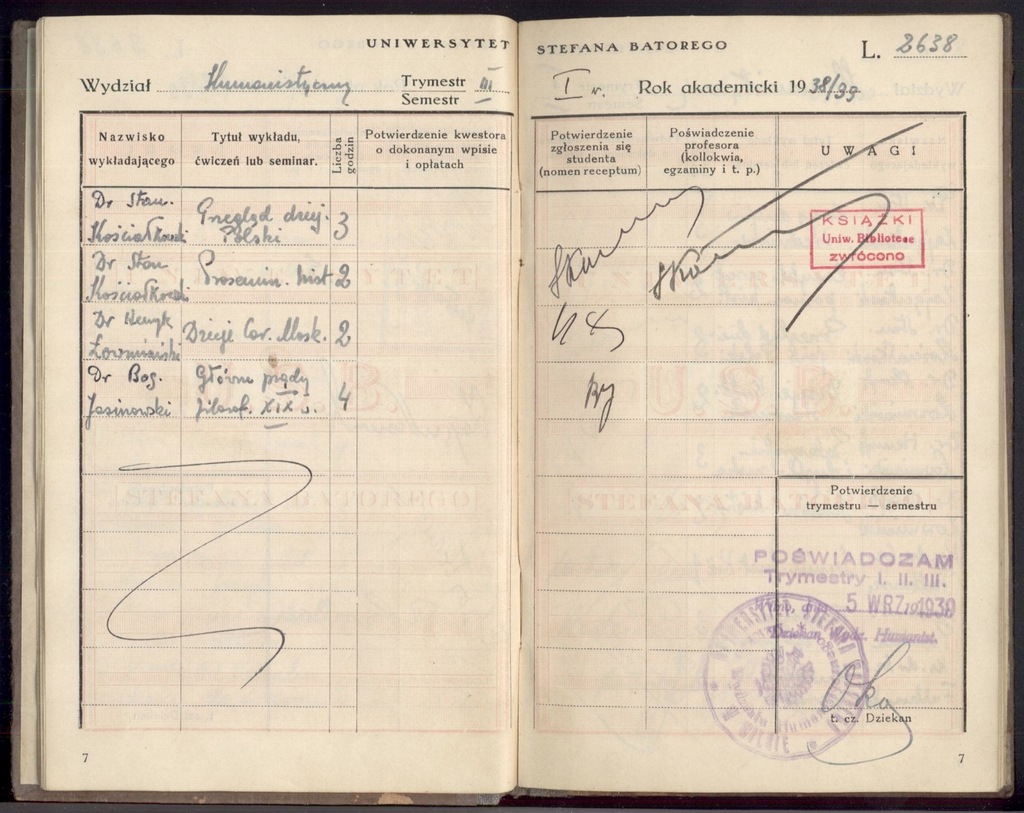 UNIWERSYTET
Wydział Humanistyczny Trymestr III
Semestr
Nazwisko
wykładającego
Tytuł wykładu,
ćwiczeń lub seminar.
Liczba
godzin
Potwierdzenie kwestora
o dokonanym wpisie
i opłatach
Dr Stan.
Kościałkowski
Przegląd dziej.
Polski
3
Dr Stan
Kościałkowski
Prosemin. hist
2
Dr Henryk
Łowmiański
Dzieje Car. Mosk.
2
Dr Bog.
Jasinowski
Główne prądy
filozof. XIX w.
4
7
STEFANA BATOREGO
L. 2638
I r. Rok akademicki 1938/39
Potwierdzenie
zgłoszenia się
studenta
(nomen receptum)
Poświadczenie
profesora
(kollokwia,
egzaminy i t. p.)
UWAGI
KSIĄŻKI
Uniw. Bibliotece
zwrócono
Potwierdzenie
trymestru — semestru
POŚWIADCZAM
Trymestry I. II. III.
Wilno, dnia 5 WRZ 1939
Dziekan Wydz. Humanist.
UNIWERSYTET STEFANA BATOREGO
W WILNIE
t. cz. Dziekan
7